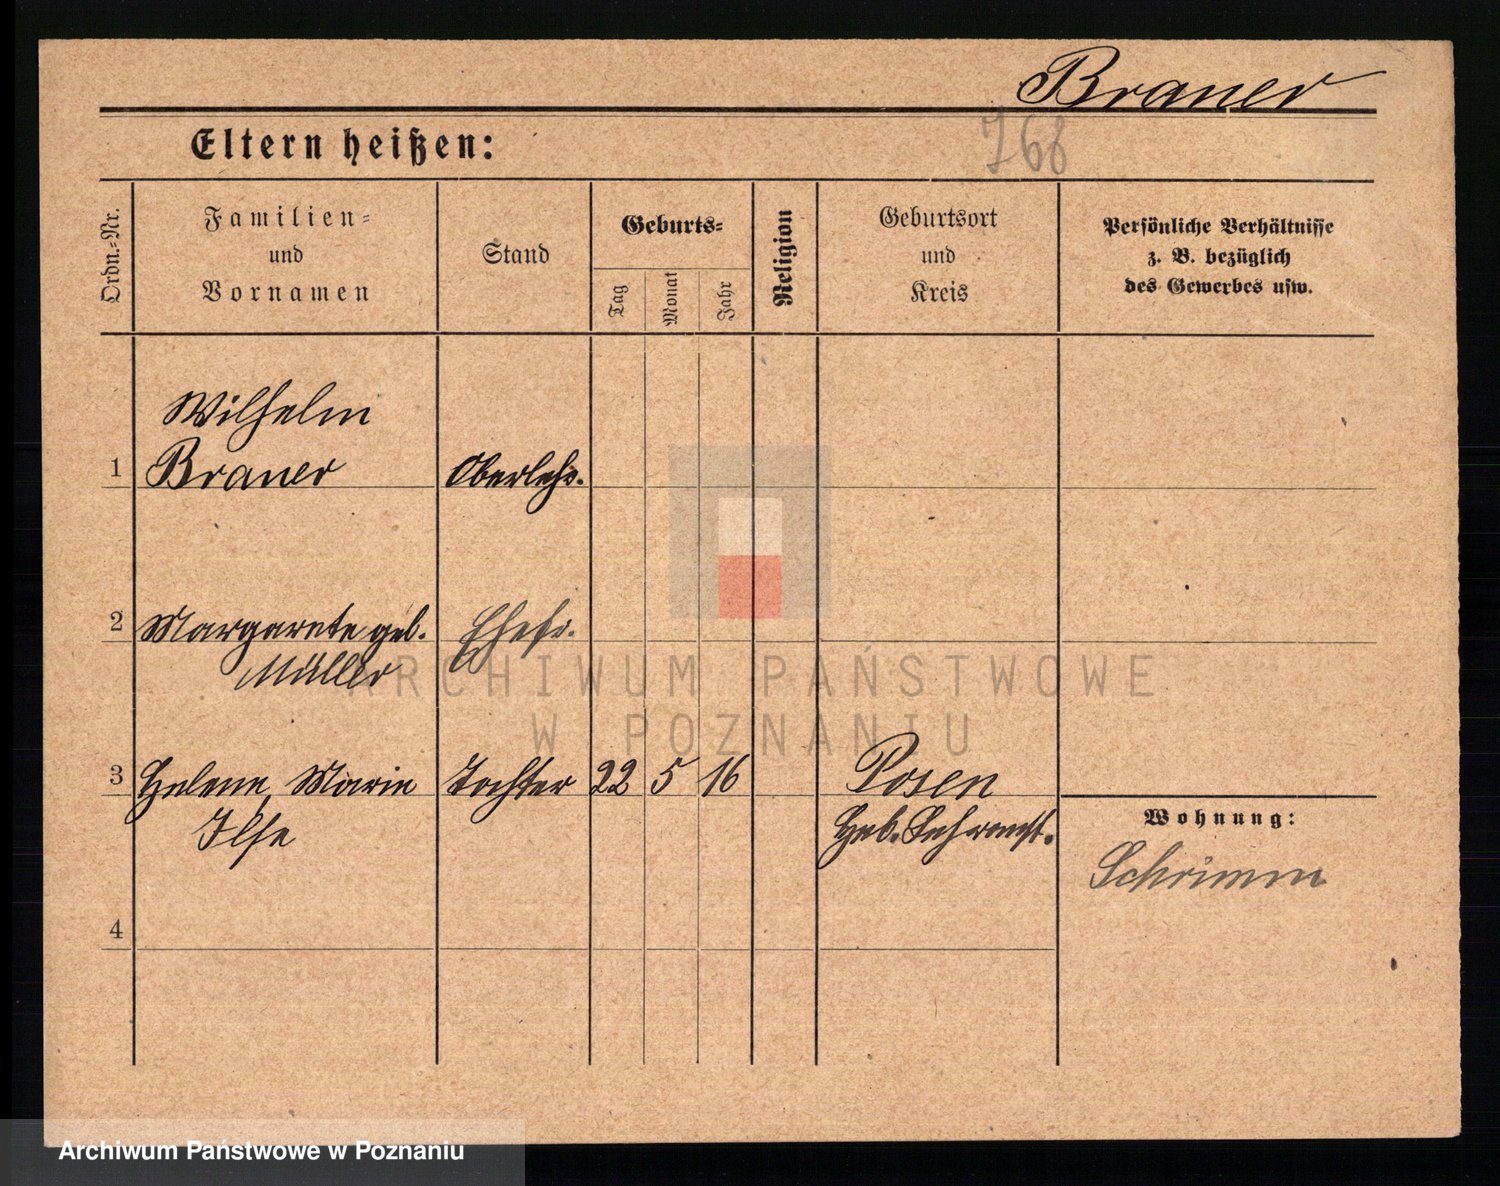 Braner
Eltern heißen:
768
Ordn.=Nr.
Familien=
und
Vornamen
Stand
Geburts=
Tag
Monat
Jahr
Religion
Geburtsort
und
Kreis
Persönliche Verhältnisse
z. B. bezüglich
des Gewerbes usw.
Wilhelm
1 Braner Oberlehr.
2 Margarete geb. Ehefr.
Müller
ARCHIWUM PAŃSTWOWE
W POZNANIU
3 Helene Marie Tochter 22 5 16 Posen
Ilse
Wohnung:
Schrimm
4
Archiwum Państwowe w Poznaniu